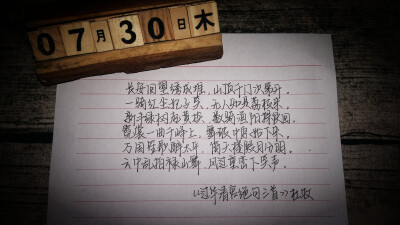 07月30日木
长安回望绣成堆，山顶千门次第开。
一骑红尘妃子笑，无人知是荔枝来。
新丰绿树起黄埃，数骑渔阳探使回。
霓裳一曲千峰上，舞破中原始下来。
万国笙歌醉太平，倚天楼殿月分明。
云中乱拍禄山舞，风过重峦下笑声。
《过华清宫绝句三首》杜牧